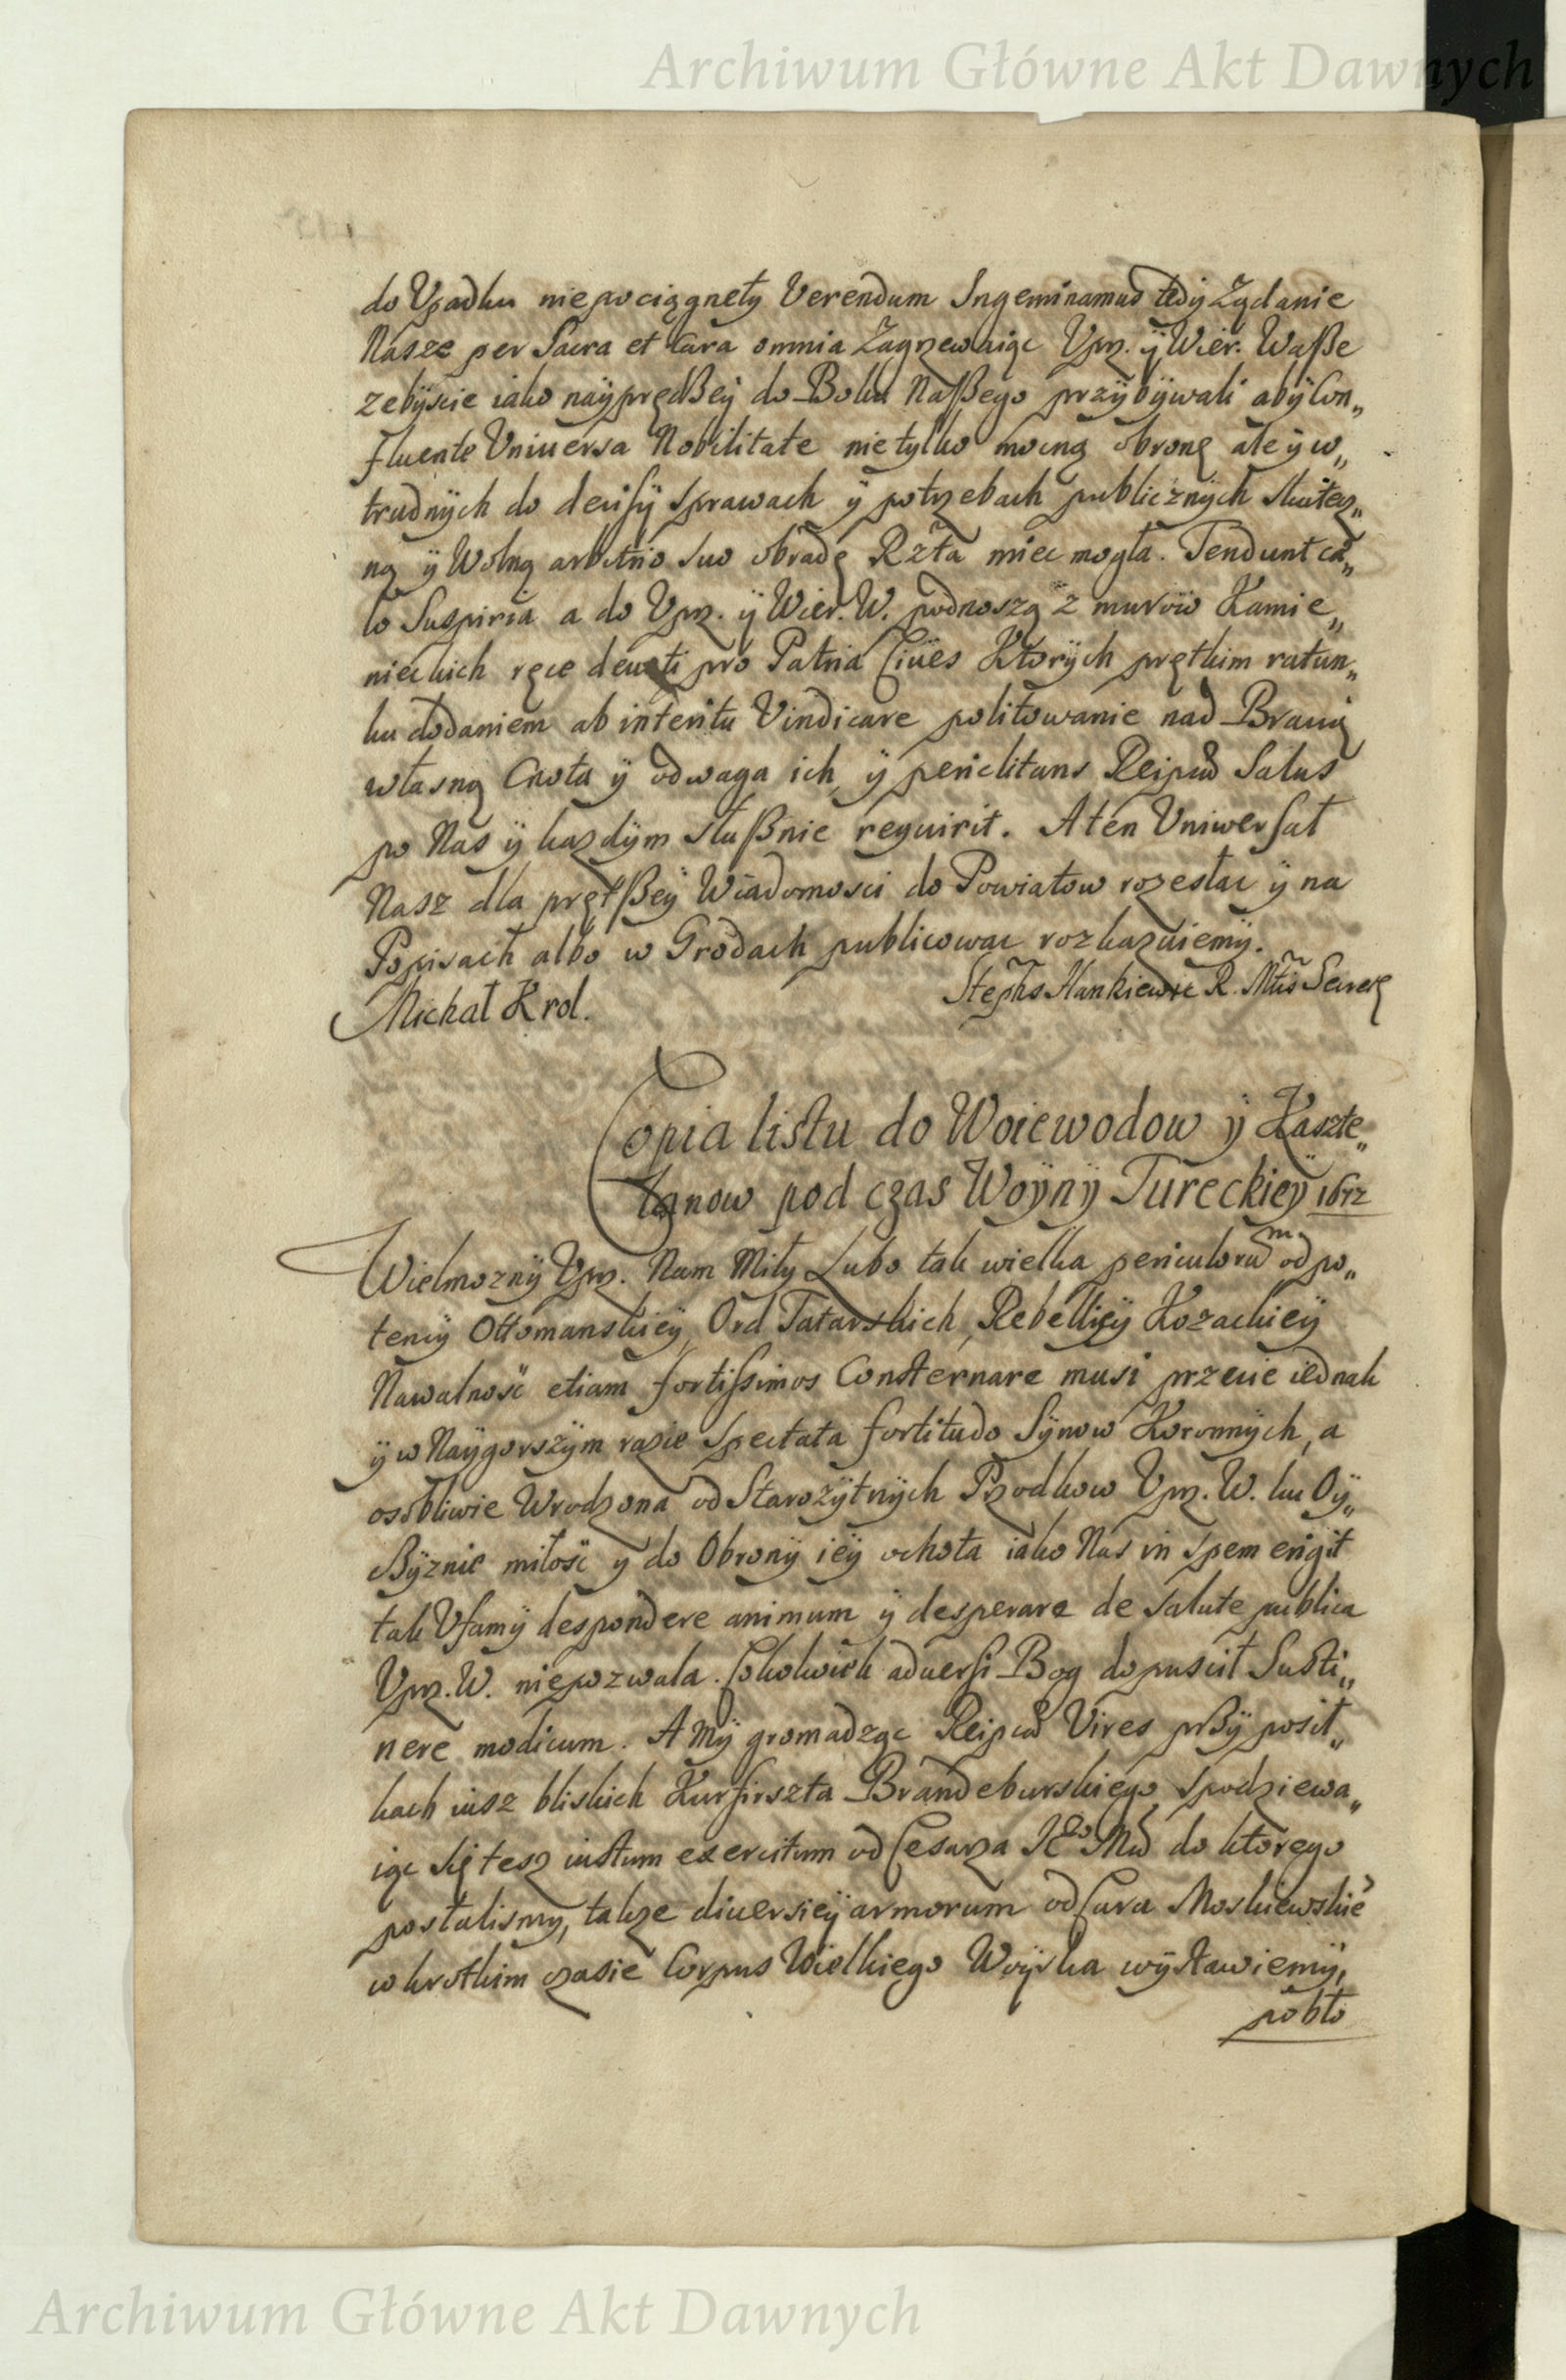 Archiwum Główne Akt Dawnych
do Upadku niepociągneły Verendum Ingeminamus tedy Ządanie
Nasze per Sacra et Cara omnia Zagrzewaiąc Uprz. ÿ Wier. Waßze
zebÿscie iako naÿprędßeÿ do Boku Naßego przÿbÿwali abÿ Con„
fluente Vniuersa Nobilitate nie tylko mocną obronę ale ÿ w„
trudnÿch do decisÿ sprawach ÿ potrzebach publicznÿch skutecz„
ną ÿ Wolną arbitrio suo obradę Rzta miec mogła. Tendunt cæ„
lo Suspiria a do Uprz. ÿ Wier. W. podnoszą z murow Kamie„
nieckich ręce deuoti pro Patria Ciues Ktorÿch prętkim ratun„
ku dodaniem ab interitu Vindicare politowanie nad Bracią
własną Cnota ÿ odwaga ich ÿ periclitans Reipub Salus
po Nas ÿ kazdÿm słußnie requirit. A ten Vniwersał
Nasz dla prętßeÿ Wiadomosci do Powiatow rozesłac ÿ na
Popisach albo w Grodach publicowac rozkazuiemÿ.
Michał Krol.
Stephs Hankiewic R. Mtis Secrer
Copia listu do Woiewodow ÿ Kaszte„
lanow pod czas Woÿnÿ Tureckieÿ 1672
Wielmoznÿ Uprz. Nam Miły Lubo tak wielka periculorum od po„
tencÿ Ottomanskieÿ, Ord Tatarskich, Rebellieÿ Kozackieÿ
Nawalnosc etiam fortissimos Consternare musi przecie iednak
ÿ w Naÿgorszÿm razie spectata fortitudo Sÿnow Koronnÿch, a
osobliwie Wrodzona od Starozÿtnÿch Przodkow Uprz. W. ku Oÿ„
czÿznie miłosc ÿ do Obronÿ ieÿ ochota iako Nas in spem erigit
tak Ufamÿ despondere animum ÿ desperare de salute publica
Uprz. W. niepozwala. Cokolwiek aduersi Bog dopuscił Susti„
nere modicum. A Mÿ gromadząc Reipub Vires przÿ posił„
kach iusz bliskich Kurfirszta Brandeburskiego, spodziewa„
iąc się tesz iustum exercitum od Cesarza JEo Mci do ktorego
posłalismy, takze diuersieÿ armorum od Cara Moskiewskie
w krotkim czasie Corpus Wielkiego Woÿska wÿstawiemÿ,
pobło
Archiwum Główne Akt Dawnych